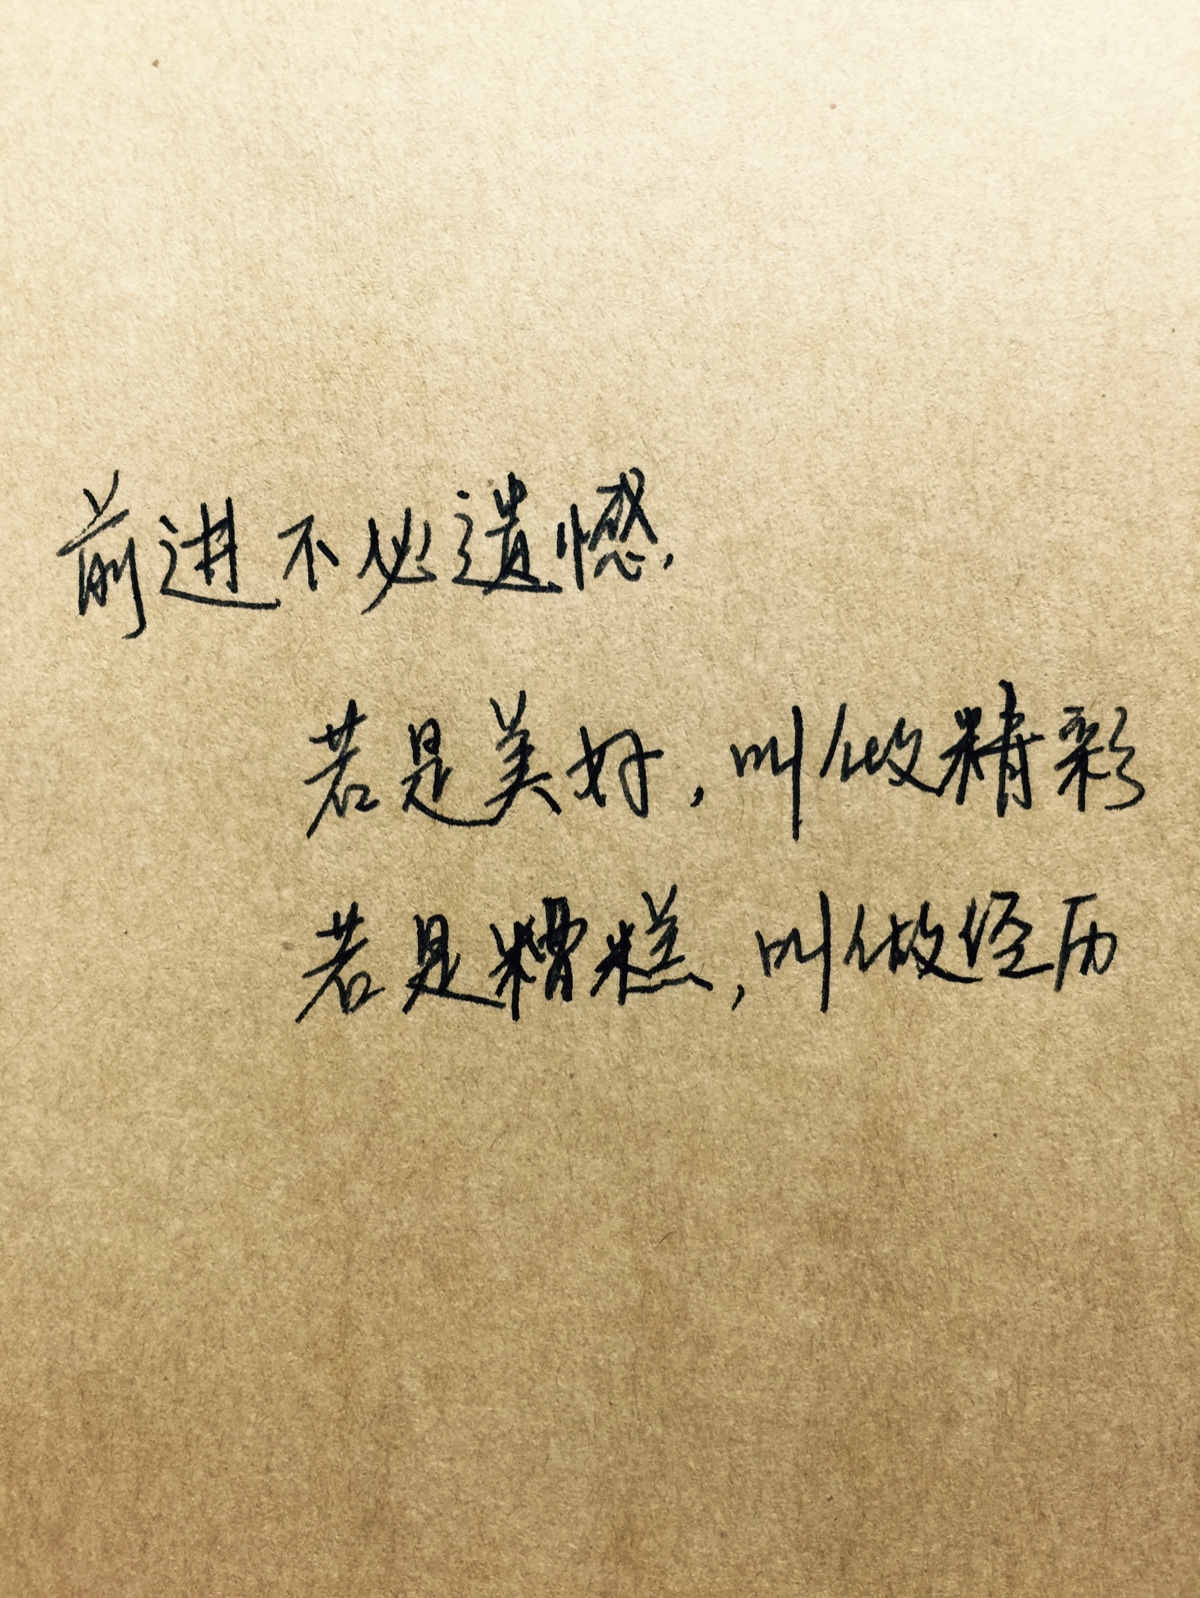 前进不必遗憾,
若是美好,叫做精彩
若是糟糕,叫做经历